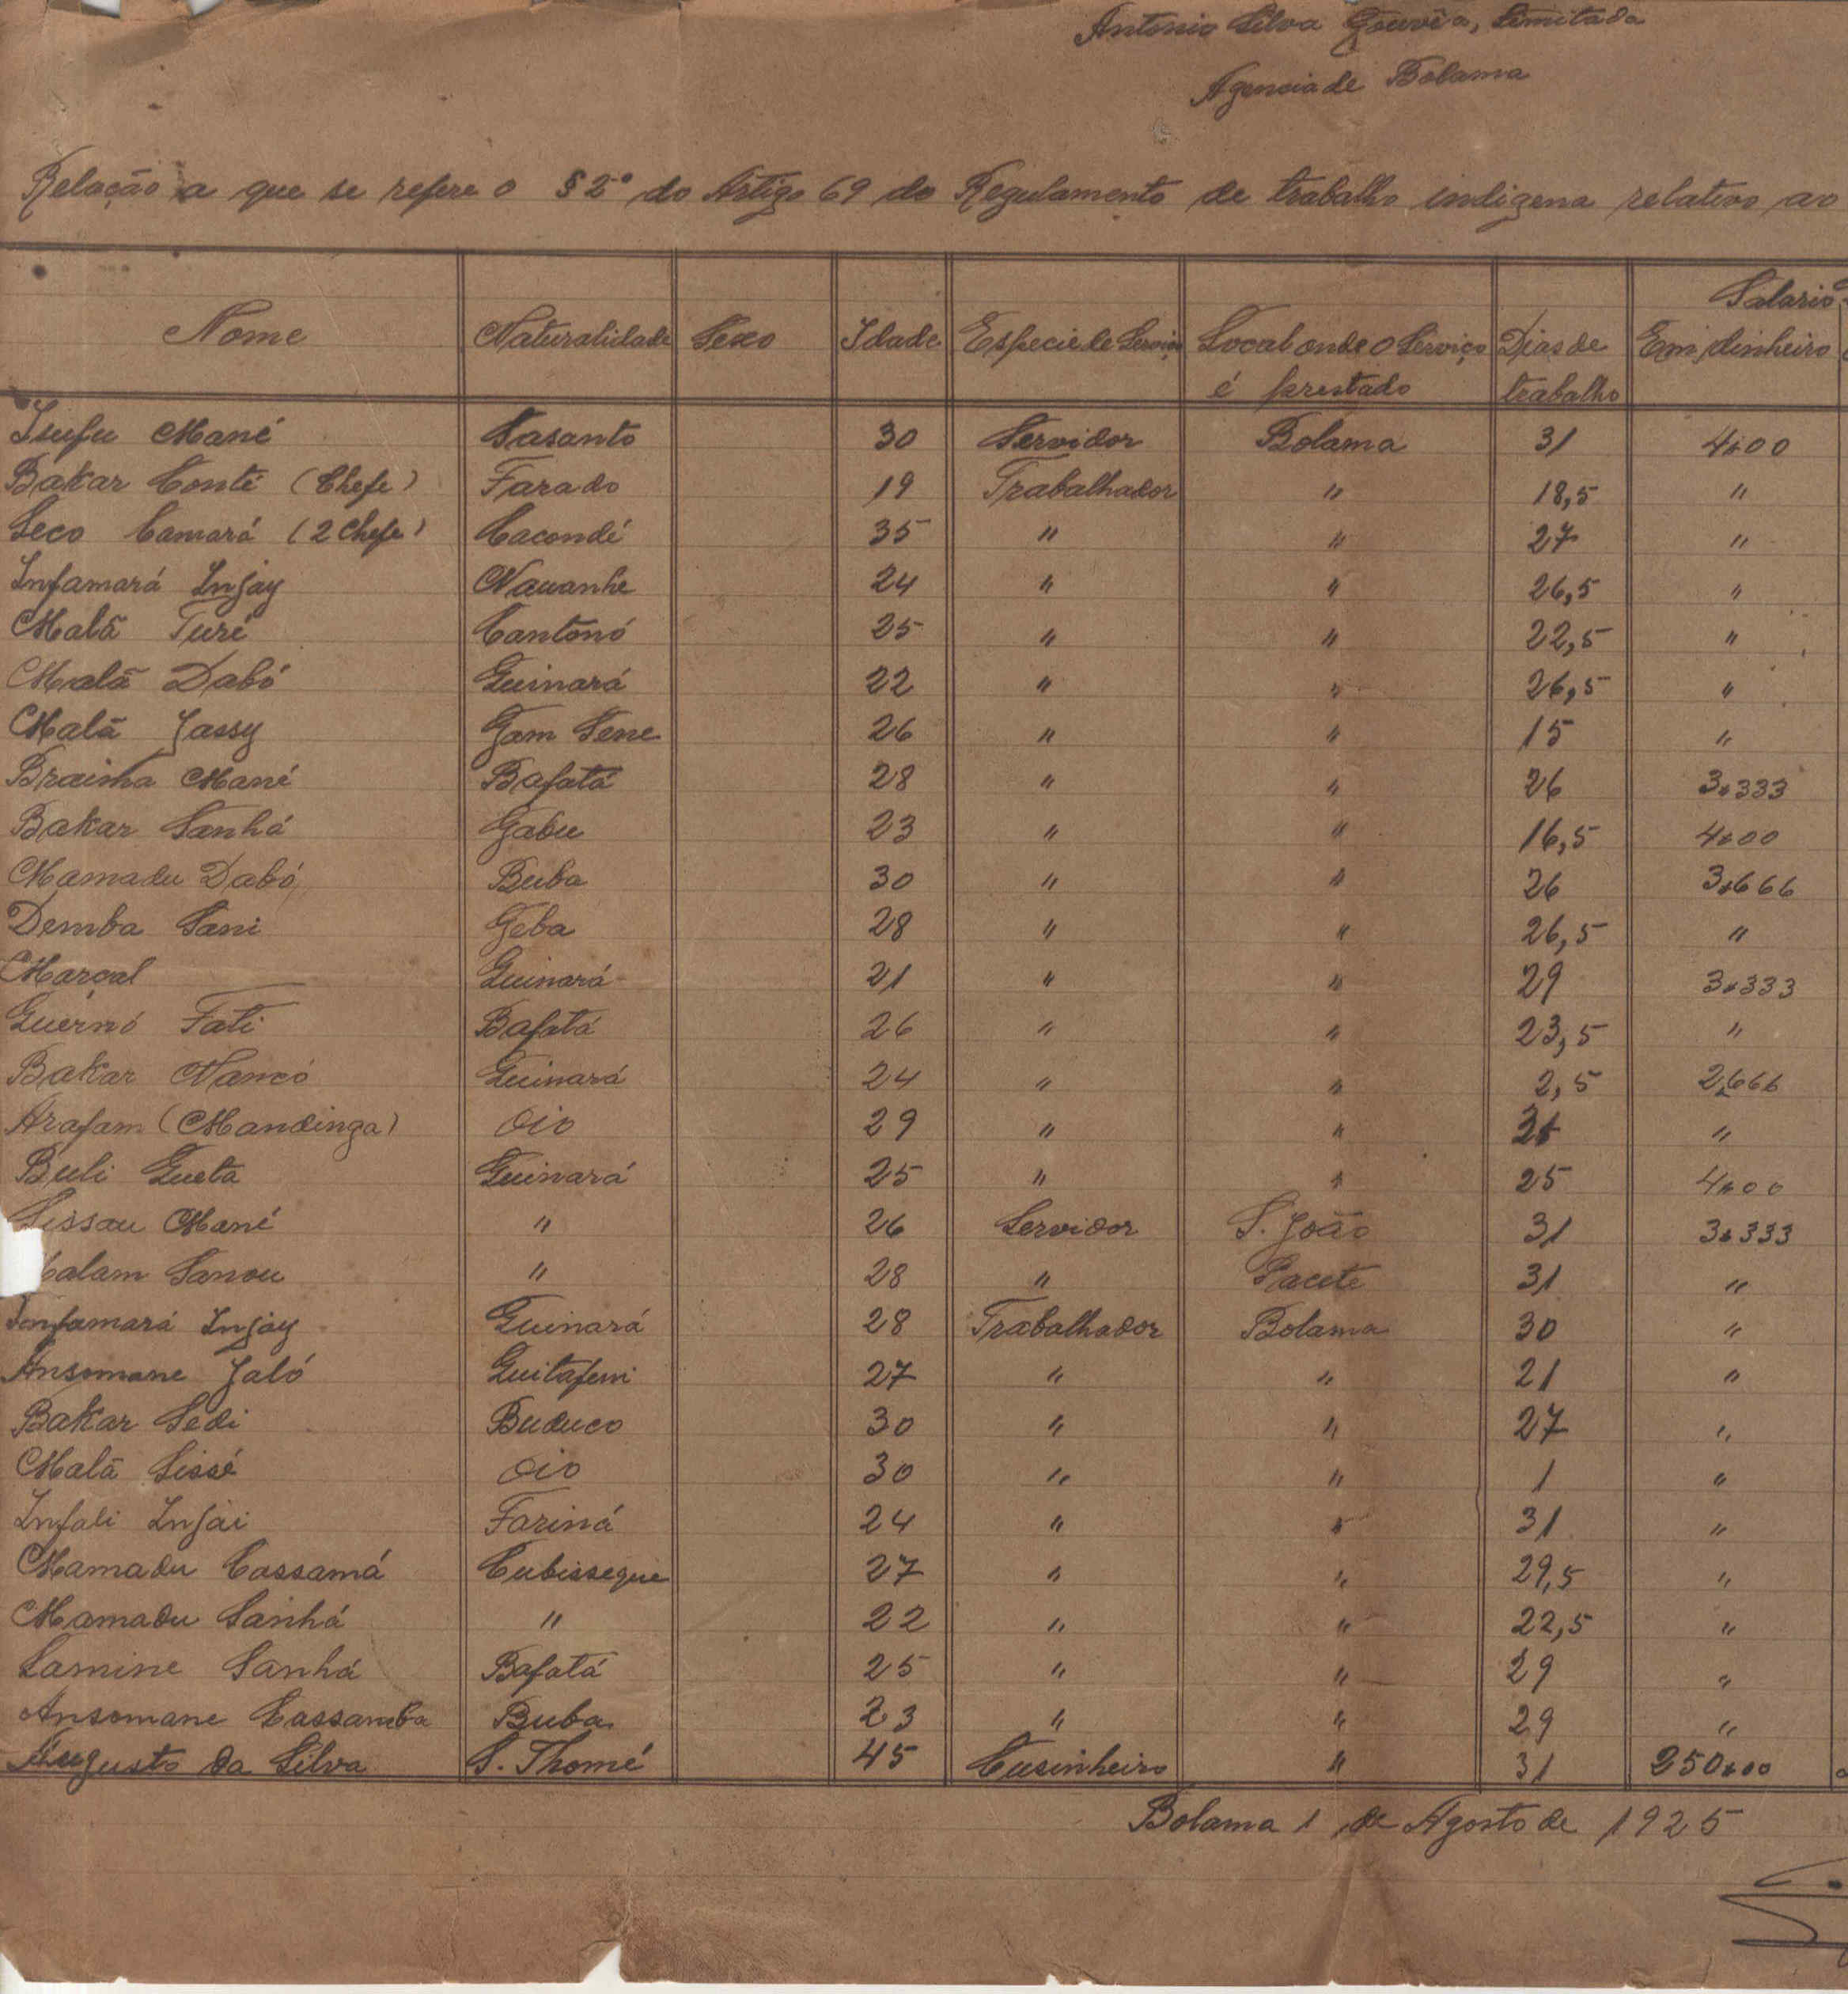 Antonio Silva Gouvêa, Limitada
Agencia de Bolama
Relação a que se refere o § 2º do Artigo 69 do Regulamento de trabalho indigena relativo ao
Salario
Nome Naturalidade Sexo Idade Especie de Serviço Local onde o Serviço Dias de Em dinheiro
é prestado trabalho
Isufu Mané Sasanto 30 Servidor Bolama 31 4$00
Bakar Conté (Chefe) Farado 19 Trabalhador " 18,5 "
Seco Camará (2 Chefe) Cacondé 35 " " 27 "
Infamará Injay Nauanhe 24 " " 26,5 "
Malã Turé Cantonó 25 " " 22,5 "
Malã Dabó Guinará 22 " " 26,5 "
Malã Jassy Gam Sene 26 " " 15 "
Braima Mané Bafatá 28 " " 26 3$333
Bakar Sanhá Gabu 23 " " 16,5 4$00
Mamadu Dabó Buba 30 " " 26 3$666
Demba Sani Geba 28 " " 26,5 "
Marçal Guinará 21 " " 29 3$333
Guernó Fati Bafatá 26 " " 23,5 "
Bakar Nancó Guinará 24 " " 2,5 2$666
Arafam (Mandinga) Oio 29 " " "
Buli Gueta Guinará 25 " " 25 4$00
Sissau Mané " 26 Servidor S. João 31 3$333
alam Sanou " 28 " 31 "
Infamará Injay Guinará 28 Trabalhador Bolama 30 "
Ansomane Jaló Guitafeni 27 " " 21 "
Bakar Sedi Buduco 30 " " 27 "
Malã Sissé Oio 30 " " 1 "
Infali Injai Fariná 24 " " 31 "
Mamadu Cassamá Cubisseque 27 " " 29,5 "
Mamadu Sanhá " 22 " " 22,5 "
Lamine Sanhá Bafatá 25 " " 29 "
Ansomane Cassamba Buba 23 " " 29 "
Augusto da Silva S. Thomé 45 Cusinheiro " 31 250$00
Bolama 1 de Agosto de 1925